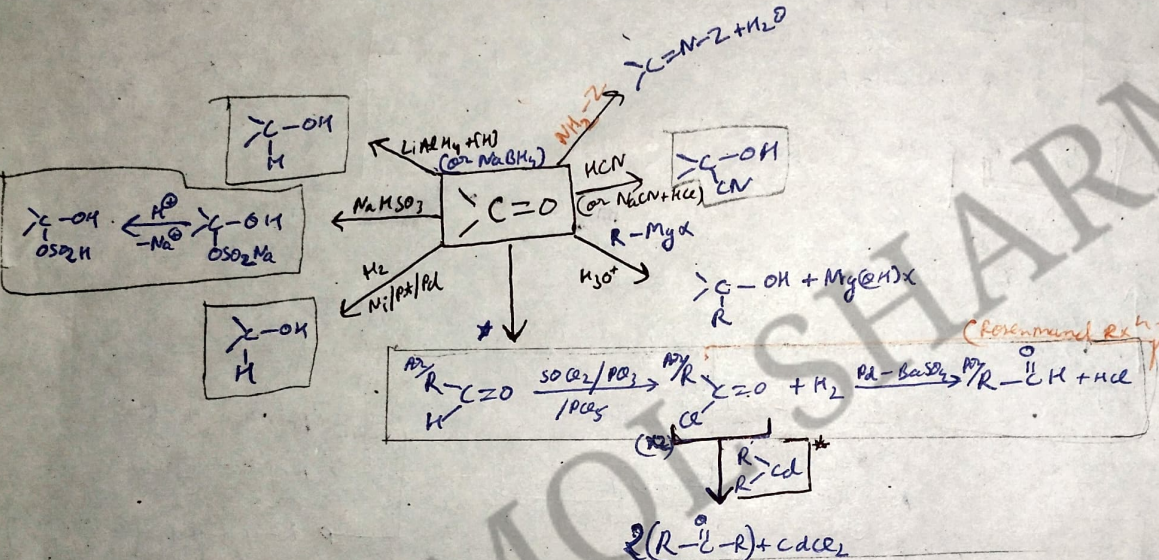 >C=N-Z + H2O
NH2-Z
>C-OH
H
LiAlH4+[H]
(or NaBH4)
HCN
(or NaCN+HCl)
>C-OH
CN
>C=O
NaHSO3
>C-OH
OSO2H
H⊕
-Na⊕
>C-OH
OSO2Na
R-MgX
H3O+
>C-OH + Mg(OH)X
R
H2
Ni/Pt/Pd
>C-OH
H
*
(Rosenmund Rxn)
Ar/R
H
C=O
SOCl2/PCl3
/PCl5
Ar/R
Cl
C=O
+ H2
Pd-BaSO4
Ar/R-C-H + HCl
O
(x2)
R
R
>Cd
*
2(R-C-R)+CdCl2
O
MOL SHARM